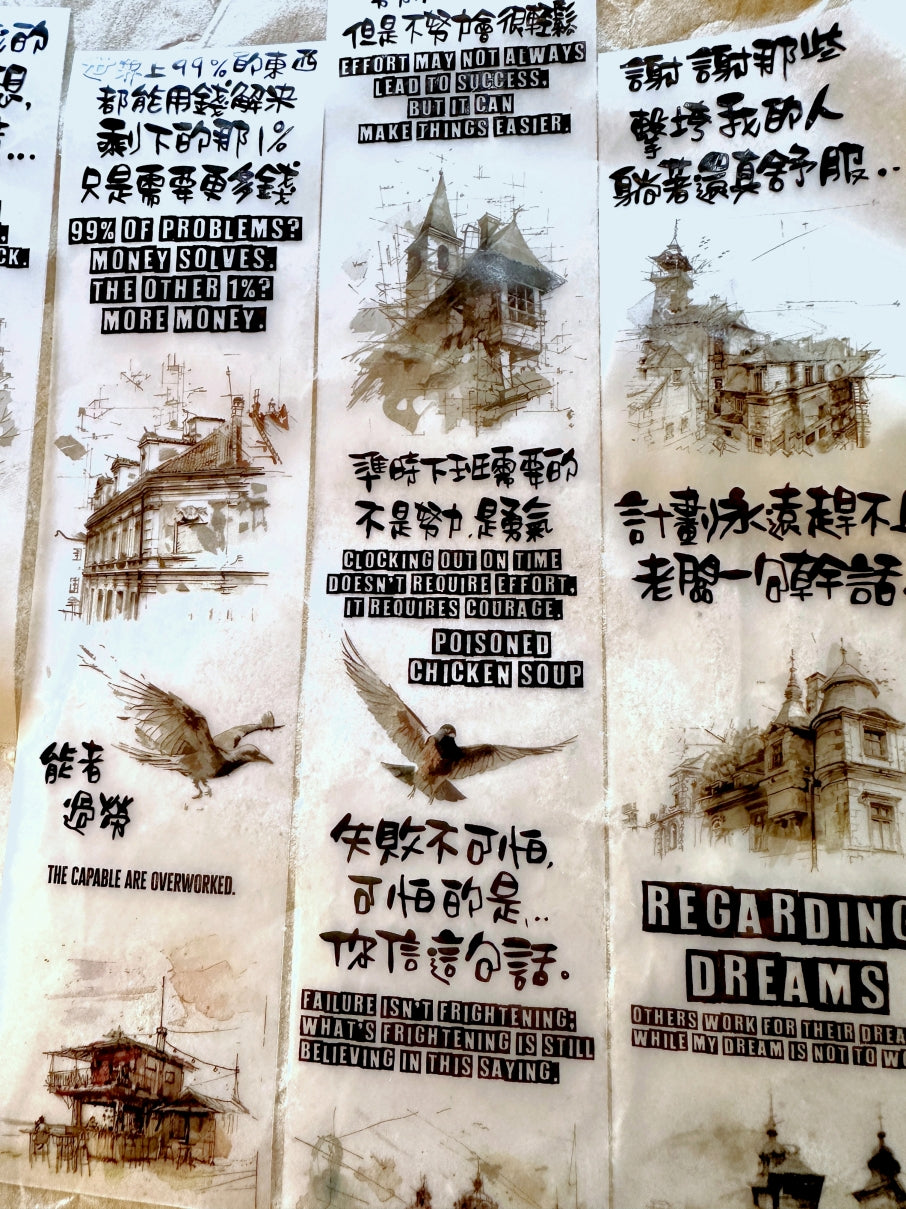 的
想,
...
CK.
世界上99%的東西
都能用錢解決
剩下的那1%
只是需要更多錢
99% OF PROBLEMS?
MONEY SOLVES.
THE OTHER 1%?
MORE MONEY.
能者
過勞
THE CAPABLE ARE OVERWORKED.
但是不努力會很輕鬆
EFFORT MAY NOT ALWAYS
LEAD TO SUCCESS,
BUT IT CAN
MAKE THINGS EASIER.
準時下班需要的
不是努力,是勇氣
CLOCKING OUT ON TIME
DOESN'T REQUIRE EFFORT,
IT REQUIRES COURAGE.
POISONED
CHICKEN SOUP
失敗不可怕,
可怕的是...
你信這句話。
FAILURE ISN'T FRIGHTENING;
WHAT'S FRIGHTENING IS STILL
BELIEVING IN THIS SAYING.
謝謝那些
擊垮我的人
躺著還真舒服...
計劃永遠趕不上
老闆一句幹話
REGARDING
DREAMS
OTHERS WORK FOR THEIR DREA
WHILE MY DREAM IS NOT TO WO